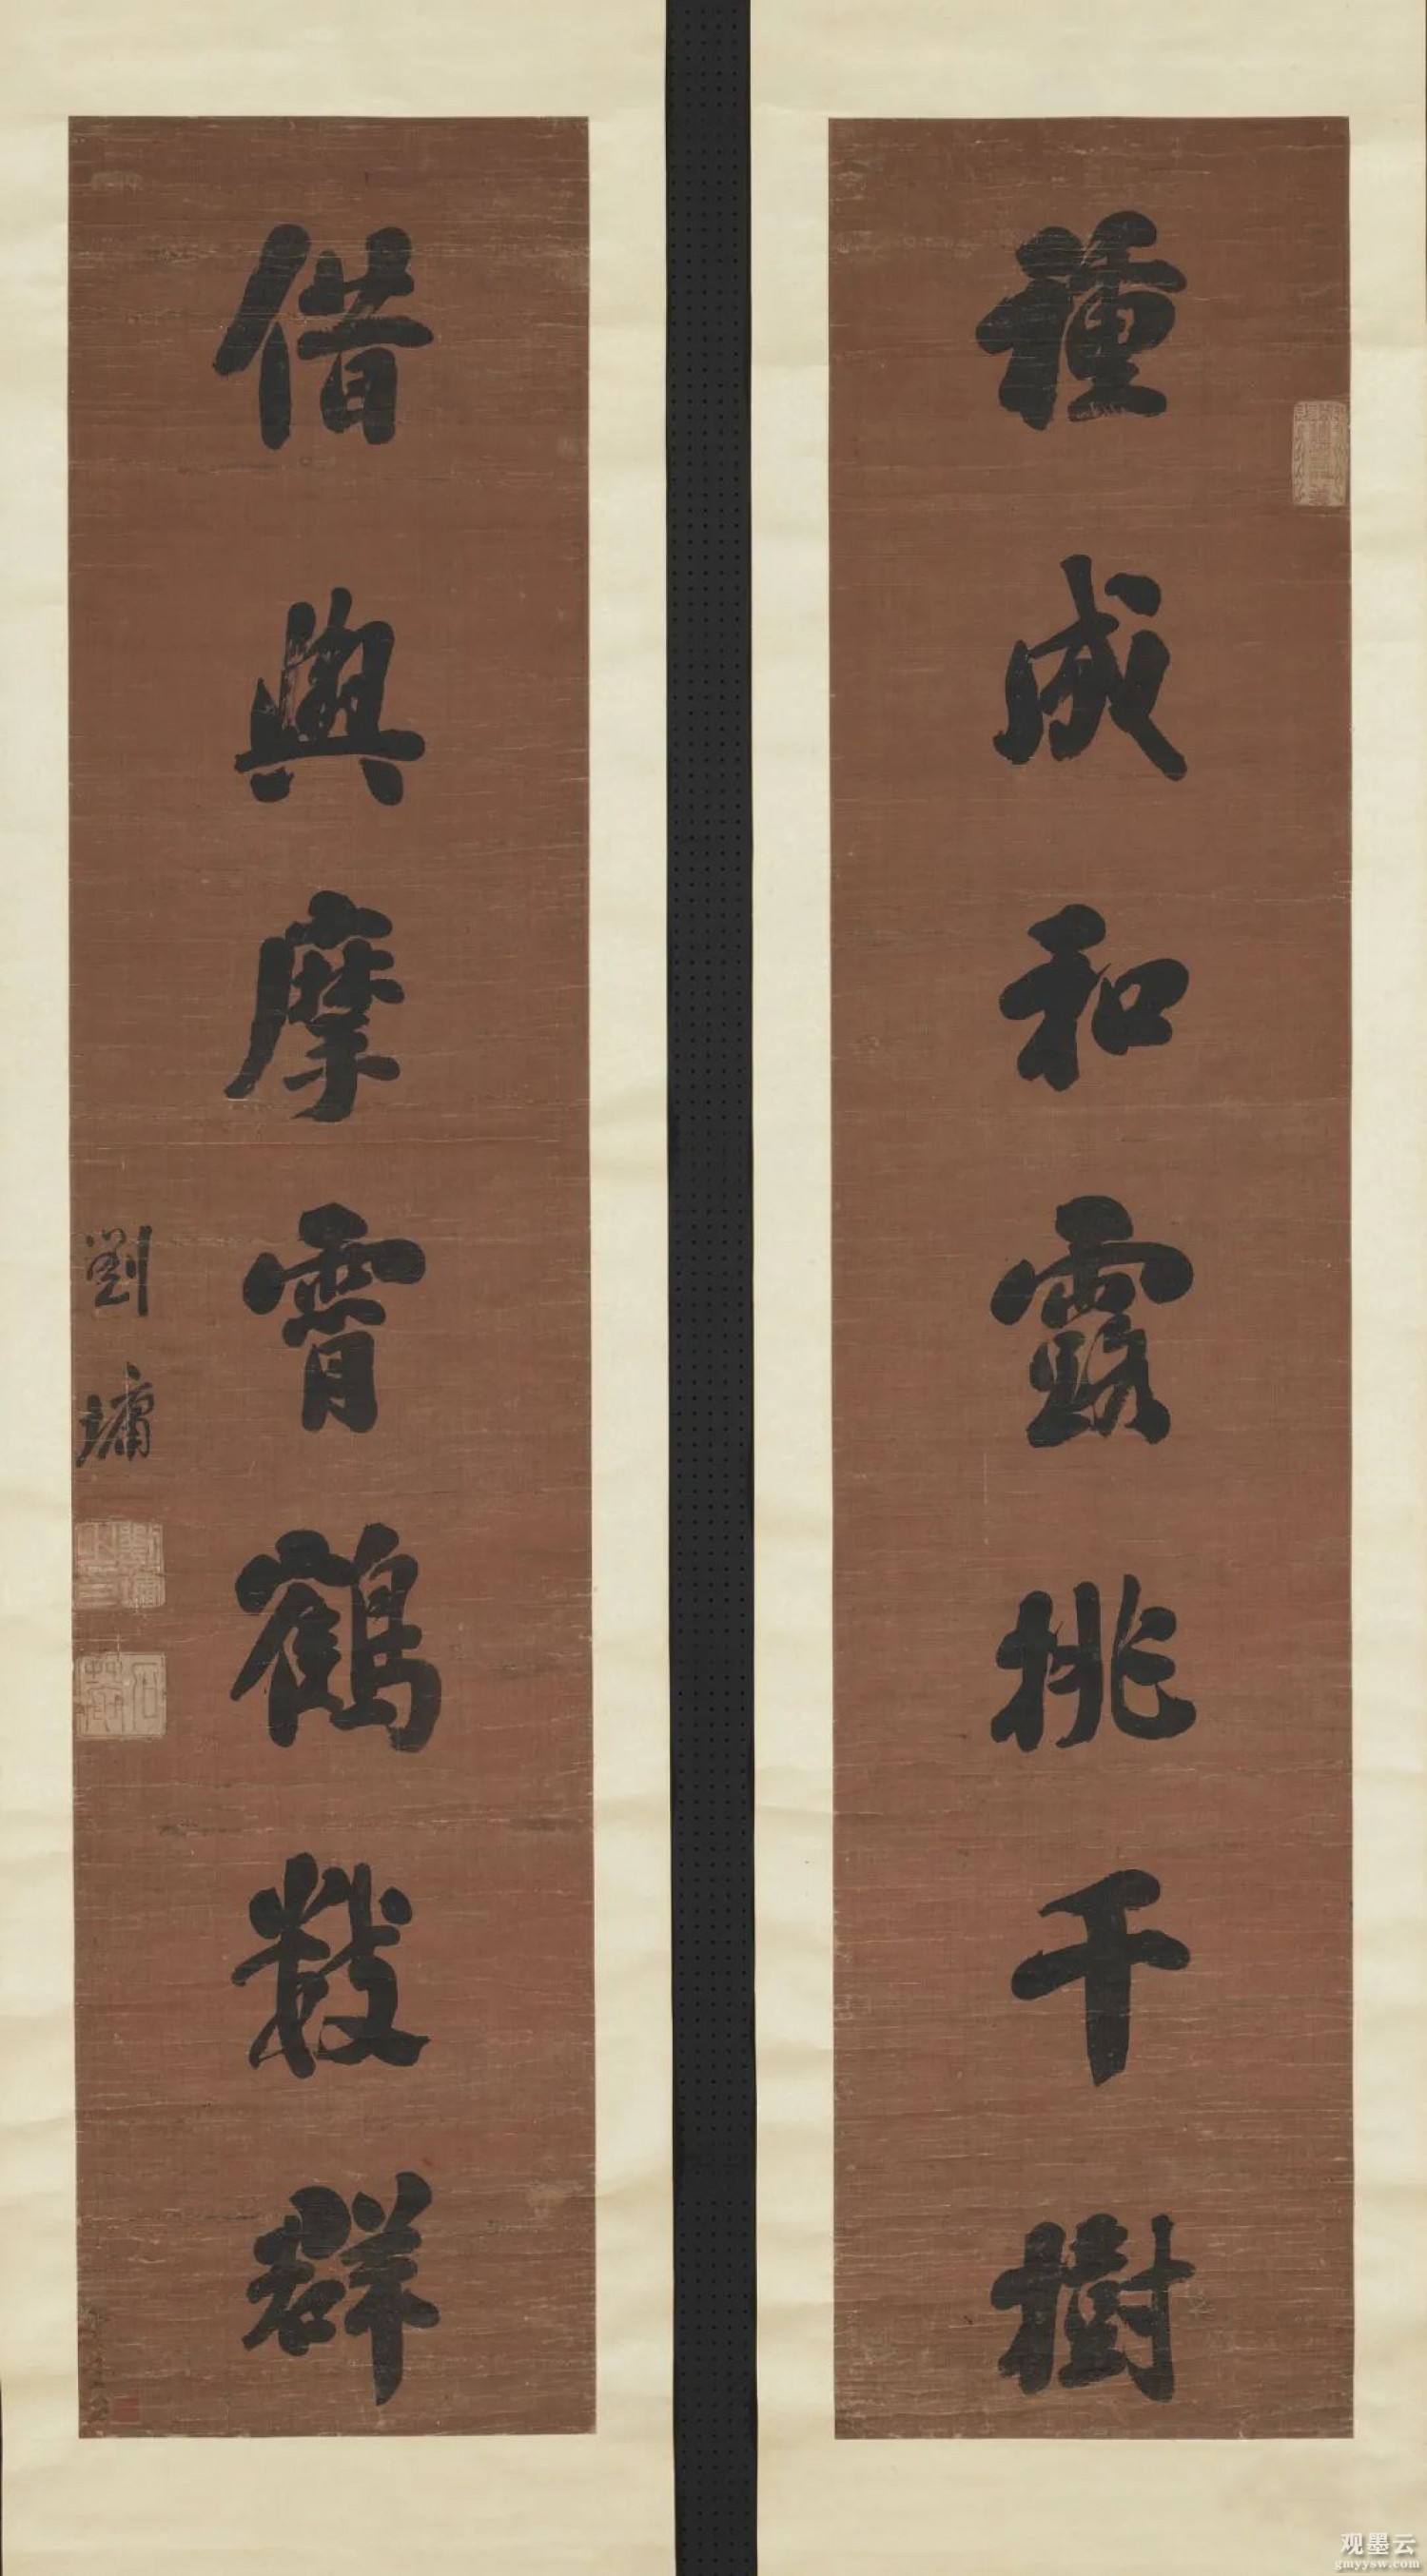 種成和露桃千樹
借與摩霄鶴數群
劉墉
劉墉之印
石菴
观墨云
gmyysw.com